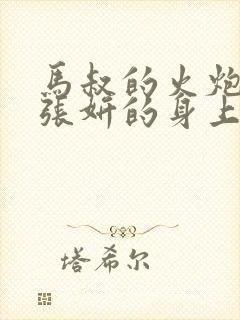 馬叔的火炮
張妍的身上
塔希尔